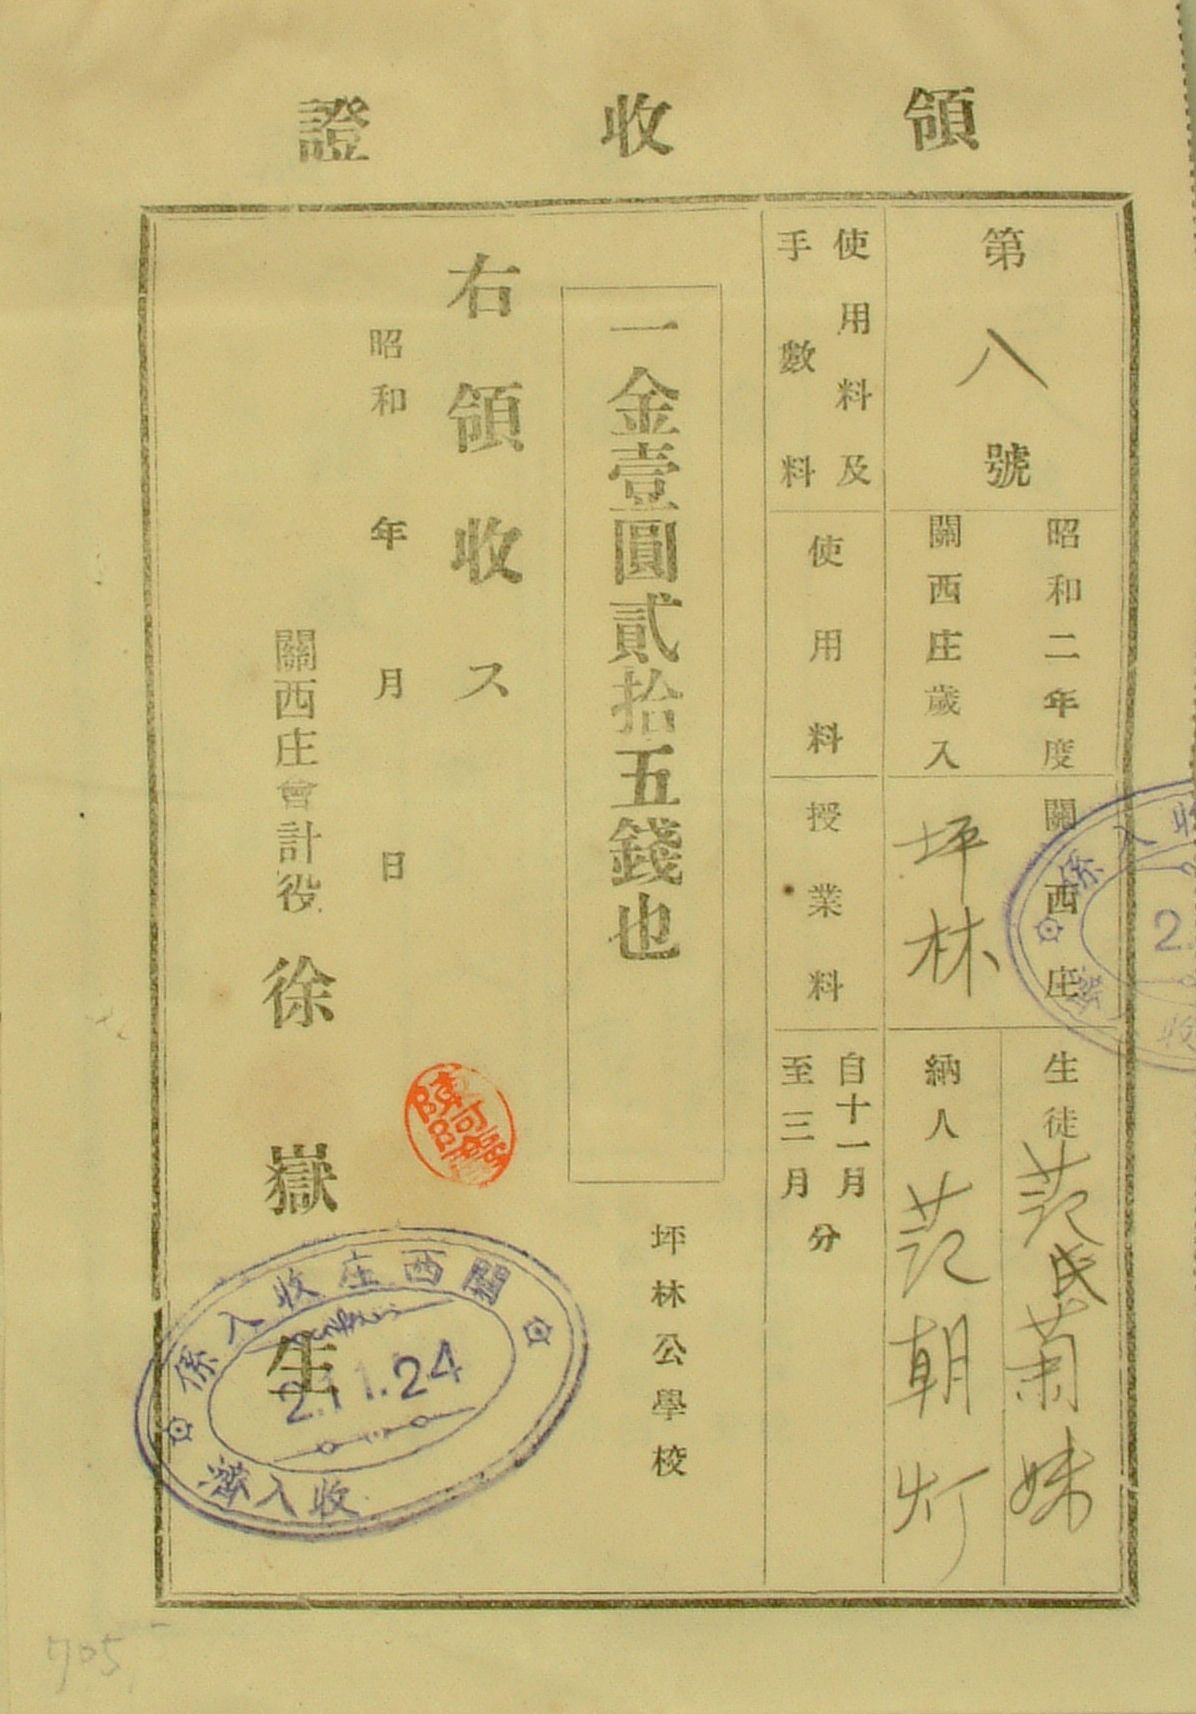 領收證
第八號
昭和二年度
關西庄歲入
關西庄
坪林
生徒 范氏菊妹
納人 范朝灯
使用料及
手數料
使用料
授業料
自十一月
至三月
分
一金壹圓貳拾五錢也
坪林公學校
右領收ス
昭和 年 月 日
關西庄會計役 徐嶽生
關西庄收入係
2.11.24
收入濟
收入係
2.
收
705